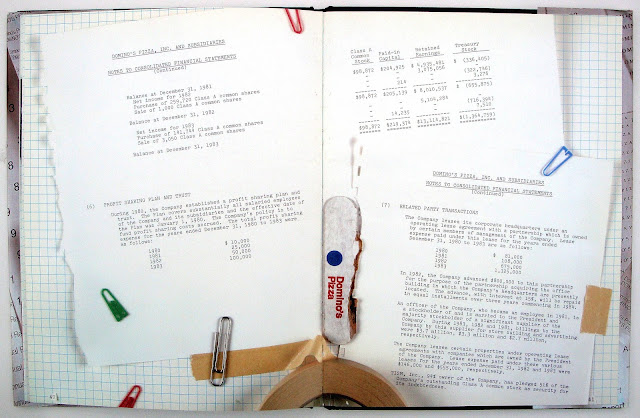 DOMINO'S PIZZA, INC. AND SUBSIDIARIES
NOTES TO CONSOLIDATED FINANCIAL STATEMENTS
(Continued)
Balance at December 31, 1981
Net income for 1982
Purchase of 259,720 Class A common shares
Sale of 1,080 Class A common shares
Balance at December 31, 1982
Net income for 1983
Purchase of Class A common shares
Sale of 3,050 Class A common shares
Balance at December 31, 1983
(6) PROFIT SHARING PLAN AND TRUST
During 1981, the Company established a profit sharing plan and
trust. The Plan covers substantially all salaried employees
of the Company and its subsidiaries and the effective date of
the Plan was January 1, 1980. The Company's policy is to
fund profit sharing costs accrued. The total profit sharing
expense for the years ended December 31, 1980 to 1983 were
as follows:
1980 $ 10,000
1981 25,000
1982 50,000
1983 100,000
Class A
Common
Stock
Paid-in
Capital
Retained
Earnings
Treasury
Stock
$98,872 $204,825
314
$98,872 $205,139 $ 8,010,537
5,104,284
14,235
$98,872 $219,374
Domino's
Pizza
DOMINO'S PIZZA, INC. AND SUBSIDIARIES
NOTES TO CONSOLIDATED FINANCIAL STATEMENTS
(Continued)
(7) RELATED PARTY TRANSACTIONS
The Company leases its corporate headquarters under an
operating lease agreement with a partnership which is owned
by certain members of management of the Company. Lease
expense paid under this lease for the years ended
December 31, 1980 to 1983 are as follows:
1980
1981
1982
1983
In 1982, the Company advanced $600,000 to this partnership
for the purpose of the partnership purchasing the office
building in which the Company's headquarters are presently
located. The advance, with interest at 15%, will be repaid
in equal installments over three years commencing in 1984.
An officer of the Company, who became an employee in 1981, is
a stockholder of and is married to the President and
majority stockholder of a significant supplier of the
Company. During 1983, 1982 and 1981, billings to the
Company by this supplier for store building and advertising
were $3.7 million, and $2.7 million,
respectively.
The Company leases certain properties under operating lease
agreements with companies which are owned by the President
of the Company. Lease expense paid under these various
leases for the years ended December 31, 1982 and 1983 were
respectively.
Inc., owner of the Company, has pledged 51% of the
Company's outstanding Class A common stock as security for
its indebtedness.